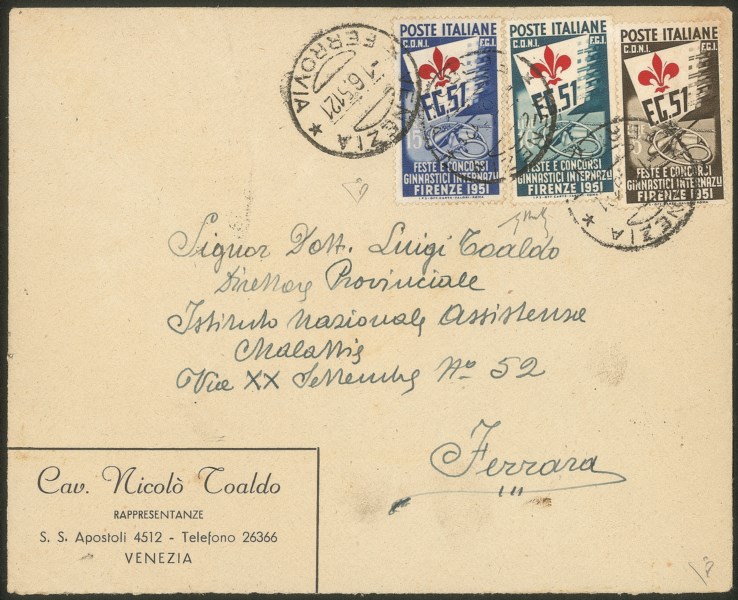 POSTE ITALIANE
C.O.N.I. F.G.I.
F.G.51
15
FESTE E CONCORSI
GINNASTICI INTERNAZLI
FIRENZE 1951
POSTE ITALIANE
C.O.N.I. F.G.I.
F.G.51
FESTE E CONCORSI
GINNASTICI INTERNAZLI
FIRENZE 1951
POSTE ITALIANE
C.O.N.I. F.G.I.
F.G.51
5
FESTE E CONCORSI
GINNASTICI INTERNAZLI
FIRENZE 1951
VENEZIA ★ FERROVIA
Signor Dott. Luigi Toaldo
Direttore Provinciale
Istituto Nazionale Assistenza
Malattie
Via XX Settembre No 52
Ferrara
Cav. Nicolò Toaldo
RAPPRESENTANZE
S. S. Apostoli 4512 - Telefono 26366
VENEZIA